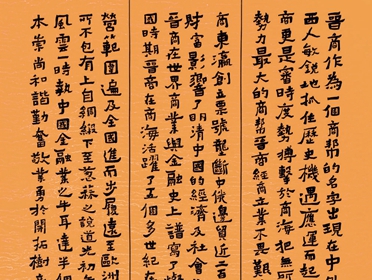 晉商作為一個商幫的名字出現在中
西人敏銳地抓住歷史機遇應運而起
商更是審時度勢搏擊於商海
勢力最大的商幫晉商經商立業不畏艱
商東瀛創立票號壟斷中俄邊貿近二百
財富影響了明清中國的經濟及社會
晉商在世界商業與金融史上譜寫了
國時期晉商在商海活躍了五個多世紀在
營範圍遍及全國進而步履遠至歐洲
所不包有上自綢緞下至蔥蒜之說道光初
風雲一時執中國金融業之牛耳達半個
本崇尚和諧勤奮敬業勇於開拓樹